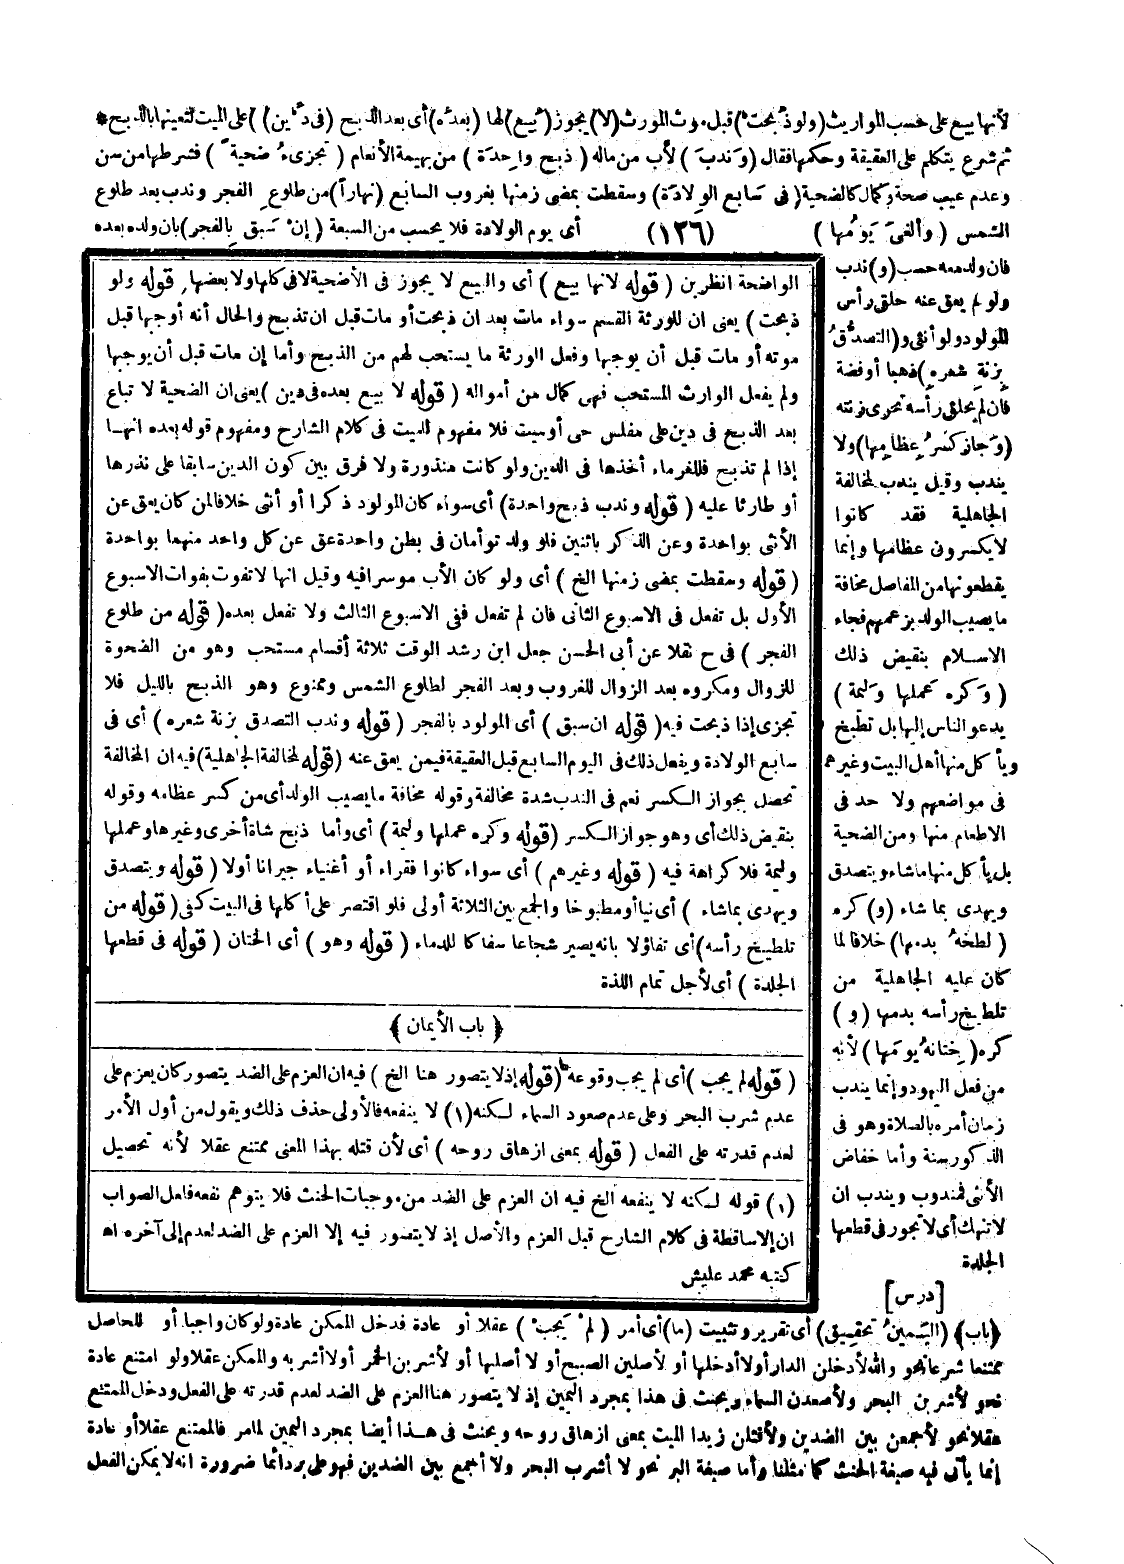 لأنها بيع على حسب المواريث (ولو ذُبحتْ) قبل موت المورث (لا) يجوز (بَيعُ) لها (بعدَه) أى بعد الذبح (فى دَين) على الميت لتعينها بالذبح *
ثم شرع يتكلم على العقيقة وحكمها فقال (وَنُدبَ) لأب من ماله (ذبح واحِدَة) من بهيمة الأنعام (تجزئُ ضحيةً) فشرطها من سن
وعدم عيب صحة وكمال كالضحية (فى سَابع الوِلادَة) وسقطت بمضى زمنها بغروب السابع (نهاراً) من طلوع الفجر وندب بعد طلوع
الشمس (وألغىَ يَومُها) (١٢٦) أى يوم الولادة فلا يحسب من السبعة (إنْ سَبق بِالفجر) بان ولد بعده
فان ولد معه حسب (و) ندب
ولو لم يعق عنه حلق رأس
المولود ولو أنثى و (التصدُّقُ
بِزنةِ شعره) ذهبا أو فضة
فان لم يحلق رأسه تحرى زنته
(وَجاز كسرُ عِظامِها) ولا
يندب وقيل يندب لمخالفة
الجاهلية فقد كانوا
لا يكسرون عظامها وإنما
يقطعونها من المفاصل مخافة
ما يصيب الولد بزعمهم فجاء
الاسلام بنقيض ذلك
(وَكره عَملها وَليمة)
يدعو الناس إليها بل تطبخ
ويأكل منها أهل البيت وغيرهم
فى مواضعهم ولا حد فى
الاطعام منها ومن الضحية
بل يأكل منها ما شاء ويتصدق
ويهدى بما شاء (و) كره
(لطخهُ بدمها) خلافا لما
كان عليه الجاهلية من
تلطيخ رأسه بدمها (و)
كره (خِتانهُ يومَها) لأنه
من فعل اليهود وإنما يندب
زمان أمره بالصلاة وهو فى
الذكور سنة وأما خفاض
الأنثى فمندوب ويندب ان
لا تنهك أى لا تجور فى قطعها
الجلدة
الواضحة انظر بن (قوله لانها بيع) أى والبيع لا يجوز فى الأضحية لا فى كلها ولا بعضها (قوله ولو
ذبحت) يعنى ان للورثة القسم سواء مات بعد ان ذبحت أو مات قبل ان تذبح والحال أنه أوجبها قبل
موته أو مات قبل أن يوجبها وفعل الورثة ما يستحب لهم من الذبح وأما إن مات قبل أن يوجبها
ولم يفعل الوارث المستحب فهى كمال من أمواله (قوله لا بيع بعده فى دين) يعنى ان الضحية لا تباع
بعد الذبح فى دين على مفلس حى أو ميت فلا مفهوم للميت فى كلام الشارح ومفهوم قوله بعده انهـا
إذا لم تذبح فللغرماء أخذها فى الدين ولو كانت منذورة ولا فرق بين كون الدين سابقا على نذرها
أو طارئا عليه (قوله وندب ذبح واحدة) أى سواء كان المولود ذكرا أو أنثى خلافا لمن كان يعق عن
الأنثى بواحدة وعن الذكر باثنين فلو ولد توأمان فى بطن واحدة عق عن كل واحد منهما بواحدة
(قوله وسقطت بمضى زمنها الخ) أى ولو كان الأب موسرا فيه وقيل انها لا تفوت بفوات الاسبوع
الأول بل تفعل فى الاسبوع الثانى فان لم تفعل ففى الاسبوع الثالث ولا تفعل بعده (قوله من طلوع
الفجر) فى ح نقلا عن أبى الحسن جعل ابن رشد الوقت ثلاثة أقسام مستحب وهو من الضحوة
للزوال ومكروه بعد الزوال للغروب وبعد الفجر لطلوع الشمس وممنوع وهو الذبح بالليل فلا
تجزى إذا ذبحت فيه (قوله ان سبق) أى المولود بالفجر (قوله وندب التصدق بزنة شعره) أى فى
سابع الولادة ويفعل ذلك فى اليوم السابع قبل العقيقة فيمن يعق عنه (قوله لمخالفة الجاهلية) فيه ان المخالفة
تحصل بجواز الكسر نعم فى الندب شدة مخالفة وقوله مخافة ما يصيب الولد أى من كسر عظامه وقوله
بنقيض ذلك أى وهو جواز الكسر (قوله وكره عملها وليمة) أى وأما ذبح شاة أخرى وغيرها وعملها
وليمة فلا كراهة فيه (قوله وغيرهم) أى سواء كانوا فقراء أو أغنياء جيرانا أولا (قوله ويتصدق
ويهدى بما شاء) أى نيأ أو مطبوخا والجمع بين الثلاثة أولى فلو اقتصر على أكلها فى البيت كفى (قوله من
تلطيخ رأسه) أى تفاؤلا بانه يصير شجاعا سفاكا للدماء (قوله وهو) أى الختان (قوله فى قطعها
الجلدة) أى لأجل تمام اللذة
﴿ باب الأيمان ﴾
(قوله لم يجب) أى لم يجب وقوعه (قوله إذ لا يتصور هنا الخ) فيه ان العزم على الضد يتصور كان يعزم على
عدم شرب البحر وعلى عدم صعود السماء لكنه (١) لا ينفعه فالأولى حذف ذلك ويقول من أول الأمر
لعدم قدرته على الفعل (قوله بمعنى ازهاق روحه) أى لأن قتله بهذا المعنى ممتنع عقلا لأنه تحصيل
(١) قوله لكنه لا ينفعه الخ فيه ان العزم على الضد من موجبات الحنث فلا يتوهم نفعه فاعل الصواب
ان إلا ساقطة فى كلام الشارح قبل العزم والأصل إذ لا يتصور فيه إلا العزم على الضد لعدم إلى آخره اهـ
كتبه محمد عليش
[درس]
﴿باب﴾ (اليَمينُ تحقيق) أى تقرير وتثبيت (ما) أى أمر (لمْ يَجبْ) عقلا أو عادة فدخل الممكن عادة ولو كان واجبا أو للحاصل
ممتنعا شرعا نحو والله لأدخلن الدار أولا أدخلها أو لأصلين الصبح أو لا أصليها أو لأشربن الخمر أولا أشربه والممكن عقلا ولو امتنع عادة
نحو لأشربن البحر ولأصعدن السماء ويحنث فى هذا بمجرد اليمين إذ لا يتصور هنا العزم على الضد لعدم قدرته على الفعل ودخل الممتنع
عقلا نحو لأجمعن بين الضدين ولأقتلن زيدا الميت بمعنى ازهاق روحه ويحنث فى هـذا أيضا بمجرد اليمين لما مر فالممتنع عقلا أو عادة
إنما يأتى فيه صيغة الحنث كما مثلنا وأما صيغة البر نحو لا أشرب البحر ولا أجمع بين الضدين فهو على بر دائما ضرورة انه لا يمكن الفعل